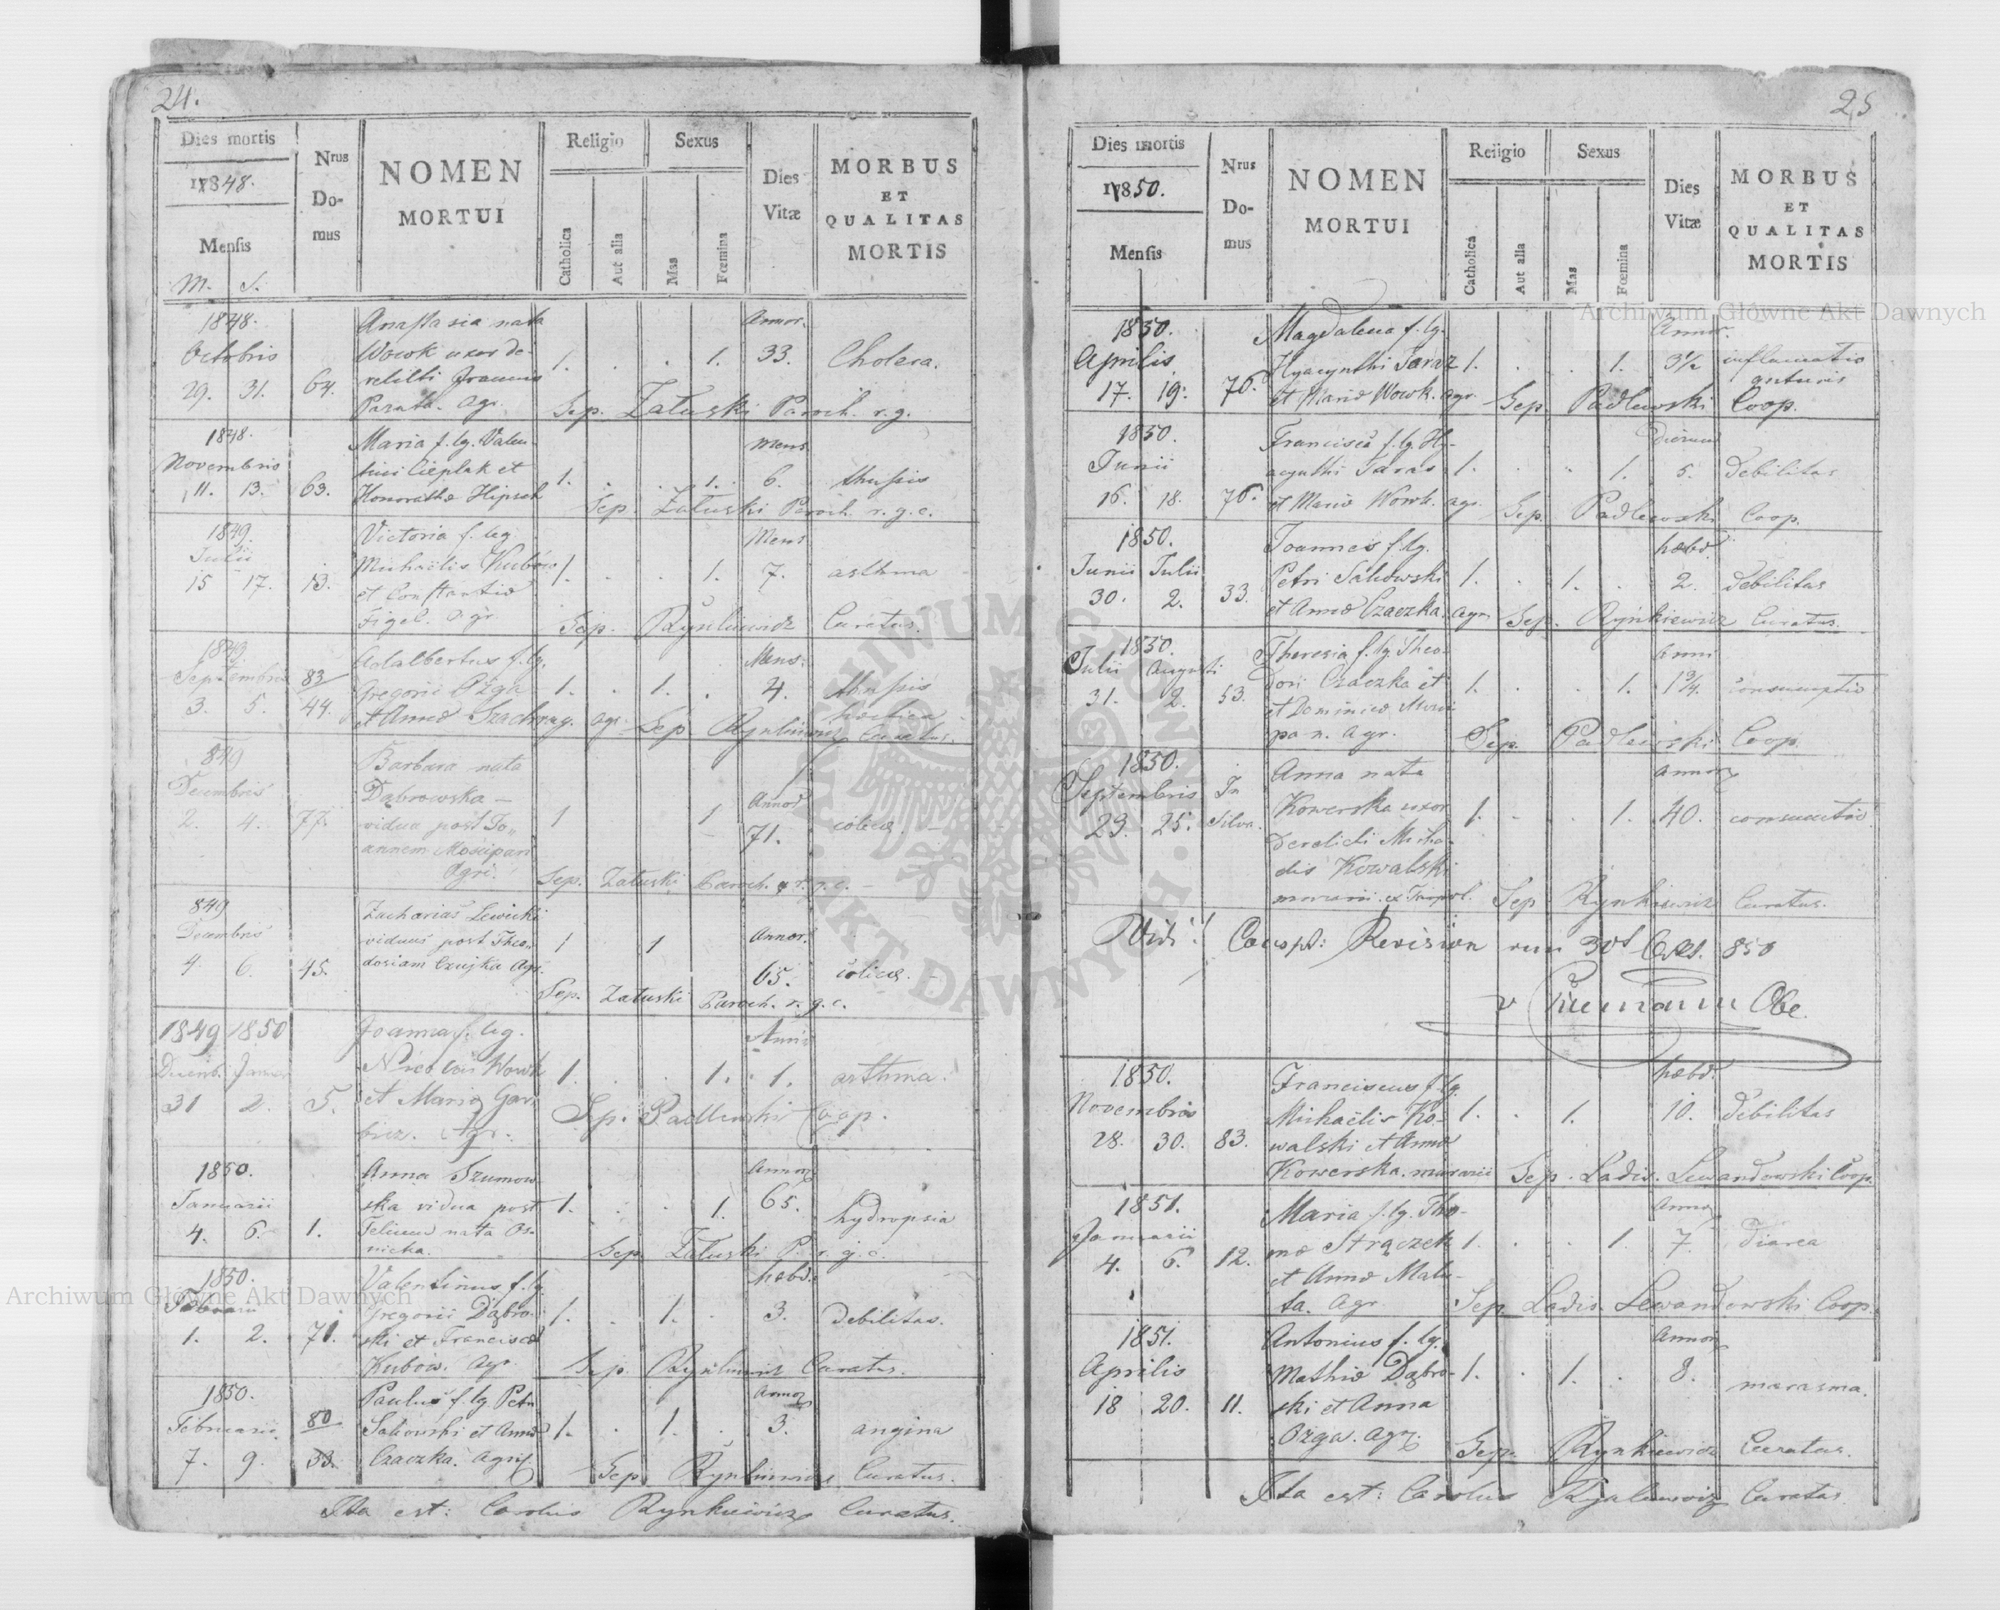 24.
Dies mortis
1848.
Mensis
M. S.
Nrus Domus
NOMEN
MORTUI
Religio
Catholica
Aut alia
Sexus
Mas
Fœmina
Dies
Vitæ
MORBUS
ET
QUALITAS
MORTIS
1848.
Octobris
29. 31.
64.
Anastasia nata
Wowk uxor de-
relicti Joannis
Parata. Agr.
1. . . 1.
Annor.
33.
Cholera.
Sep. Załuski Paroch. r. g.
1848.
Novembris
11. 13.
63.
Maria f. lg. Valen-
tini Cieplak et
Honorathæ Hipsch
1. . . 1.
Mens
6.
thussis
Sep. Załuski Paroch. r. g. c.
1849.
Julii
15 17.
13.
Victoria f. leg.
Michaëlis Kubów
et Constantiæ
Figel. Agr.
1. . . 1.
Mens
7.
asthma
Sep. Rynkiewicz Curatus.
1849
Septembris
3. 5.
83
44.
Adalbertus f. lg.
Gregorii Ożga
et Annæ Szachnag. agr.
1. . 1. .
Mens.
4.
thussis
hectica
Sep. Rynkiewicz Curatus.
849
Decembris
2. 4.
77.
Barbara nata
Dąbrowska —
vidua post Jo-
annem Mosiipan
Agri.
1 1
Annor
71.
colica. —
Sep. Załuski Paroch. r. g. c. —
849
Decembris
4 6.
45.
Zacharias Lewicki
viduus post Theo-
dosiam Czujka Agr.
1 1
Annor.
65.
colica. —
Sep. Załuski Paroch. r. g. c.
1849 1850
Decemb. Januar
31 2.
5.
Joanna f. leg.
Nicolai Wowk
et Maria Gar-
Agr.
1. . . 1.
Anni
1.
asthma.
Sep. Padlewski Coop.
1850.
Januarii
4. 6.
1.
Anna Szumow-
ska vidua post
nata Os-
nicka.
1. . . 1.
Annor
65.
hydropsia
Sep. Załuski P. r. g. c.
1850.
Februarii
1. 2.
71.
Valentinus f. lg.
Gregorii Dąbro-
ski et Francisca
Kubów. Agr.
1. . 1. .
hebd.
3.
debilitas.
Sep. Rynkiewicz Curatus.
1850.
Februarii
7. 9.
80
33.
Paulus f. lg Petri
Sakowski et Annæ
Czaczka. Agri
1. . 1. .
Annor
3.
angina
Sep Rynkiewicz Curatus.
Ita est: Carolus Rynkiewicz Curatus.
25
Dies mortis
1850.
Mensis
Nrus Domus
NOMEN
MORTUI
Religio
Catholica
Aut alia
Sexus
Mas
Fœmina
Dies
Vitæ
MORBUS
ET
QUALITAS
MORTIS
1850.
Aprilis
17. 19.
76.
Magdalena f. lg.
Hyacynthi Taraz
et Mariæ Wowk. agr.
1. . . 1.
Annor.
3½
inflamatio
guturis
Sep. Padlewski Coop.
1850.
Junii
16. 18.
76.
Francisca f. lg Hy-
acynthi Taras
et Mariæ Wowk. agr.
1. . . 1.
dierum
5.
debilitas
Sep. Padlewski Coop.
1850.
Junii Julii
30. 2.
33.
Joannes f. lg.
Petri Sakowski
et Annæ Czaczka. agr.
1. . 1. .
hebd.
2.
debilitas
Sep. Rynkiewicz Curatus.
1850.
Julii Augusti
31. 2.
53.
Theresia f. lg. Theo-
dori Czaczka et
et Dominicæ Mosci-
pan. Agr.
1. . . 1.
Anni
1¾.
consumptio
Sep. Padlewski Coop.
1850.
Septembris
23. 25.
In
silva.
Anna nata
Kowerska uxor
derelicti Micha-
elis Kowalski
murarii ex Tarnopol.
1. . . 1.
Annor
40.
consumtio
Sep Rynkiewicz Curatus.
Vidi! Conspt: Revision vum 30t 850
1850.
Novembris
28. 30.
83.
Franciscus f. lg.
Michaëlis Ko-
walski et Annæ
Kowerska. murarii
1. . 1.
hebd.
10.
debilitas
Sep. Ladis. Lewandowski Coop.
1851.
Januarii
4. 6.
12.
Maria f. lg. Tho-
mæ Strączek
et Annæ Malu-
ta. Agr.
1. . . 1.
Annor
7.
diarea
Sep. Ladis. Lewandowski Coop.
1851.
Aprilis
18 20.
11.
Antonius f. lg.
Mathiæ Dąbro-
ski et Anna
Ożga. agr.
1. . 1. .
Annor
8.
marasma.
Sep. Rynkiewicz Curatus.
Ita est: Carolus Rynkiewicz Curatus.
Archiwum Główne Akt Dawnych
Archiwum Główne Akt Dawnych
ARCHIWUM GŁÓWNE AKT DAWNYCH